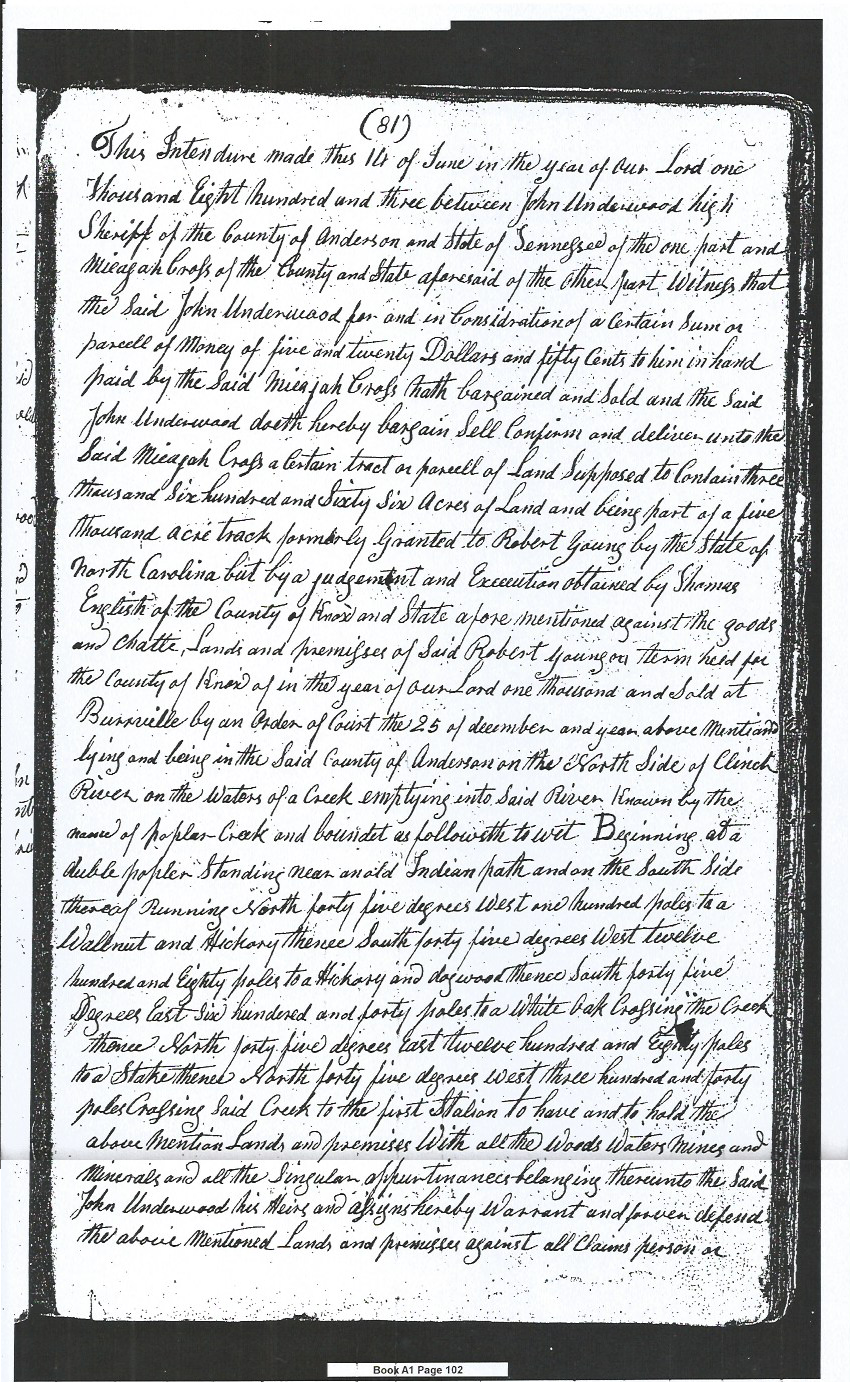 (81)
This Intendure made this 14 of June in the year of our Lord one
Thousand Eight hundred and three between John Underwood high
Sheriff of the County of Anderson and State of Tennessee of the one part and
Micagah Cross of the County and State aforesaid of the other part Witness that
the Said John Underwood for and in Considration of a Certain Sum or
parcell of Money of five and twenty Dollars and fifty Cents to him in hand
paid by the Said Micajah Cross hath bargained and Sold and the Said
John Underwood doeth hereby bargain Sell Confirm and deliver unto the
Said Micagah Cross a Certain tract or parcell of Land Supposed to Contain three
thousand Six hundred and Sixty Six Acres of Land and being part of a five
thousand acre track formerly Granted to Robert Young by the State of
North Carolina but by a judgement and Execution obtained by Thomas
English of the County of Knox and State afore mentioned against the goods
and Chatte, Lands and premisses of Said Robert Young on term held for
the County of Knox of in the year of our Lord one thousand and Sold at
Burrville by an Order of Court the 25 of december and year above Mentiand
lying and being in the Said County of Anderson on the North Side of Clinch
River on the Waters of a Creek emptying into Said River Known by the
name of poplar Creek and boundet as followsth to wit Beginning at a
duble popler Standing near an old Indian path and on the South Side
thereof Running North forty five degrees West one hundred poles to a
Wallnut and Hickory thence South forty five degrees West twelve
hundred and Eighty poles to a Hickory and dogwood thence South forty five
Degrees East Six hundred and forty poles to a White Oak Crossing the Creek
thence North forty five degrees East twelve hundred and Eighty poles
to a Stake thence North forty five degrees West three hundred and forty
poles Crossing Said Creek to the first Station to have and to hold the
above Mention Lands and premises With all the Woods Waters Mines and
Minerals and all the Singular appurtinances belonging thereunto the Said
John Underwood his Heirs and assigns hereby Warrant and forver defend
the above Mentioned Lands and premisses against all Claims person or
Book A1 Page 102